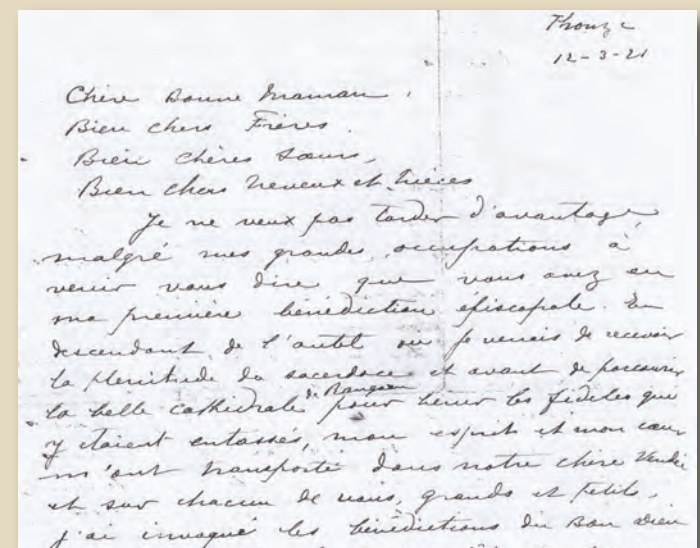 Thonze
12-3-21
Chère Bonne Maman,
Bien chers Frères
Bien chères Sœurs,
Bien chers Neveux et Nièces
Je ne veux pas tarder d'avantage,
malgré mes grandes occupations à
venir vous dire que vous avez eu
ma première bénédiction épiscopale. En
descendant de l'autel où je venais de recevoir
la plénitude du sacerdoce et avant de parcourir
la belle cathédrale de Rangoon pour bénir les fidèles qui
y étaient entassés, mon esprit et mon cœur
m'ont transporté dans notre chère Vendée
et sur chacun de vous, grands et petits,
j'ai invoqué les bénédictions du Bon Dieu